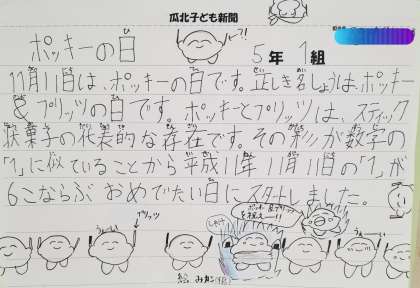 瓜北子ども新聞
ポッキーの日
5年 1組
11月11日は、ポッキーの日です。正しき名しょうは、ポッキー
&プリッツの日です。ポッキーとプリッツは、スティック
状菓子の代表的な存在です。その形が数字の
「1」に似ていることから平成11年11月11日の「1」が
6こならぶ おめでたい日にスタートしました。
プリッツ
うぃーい